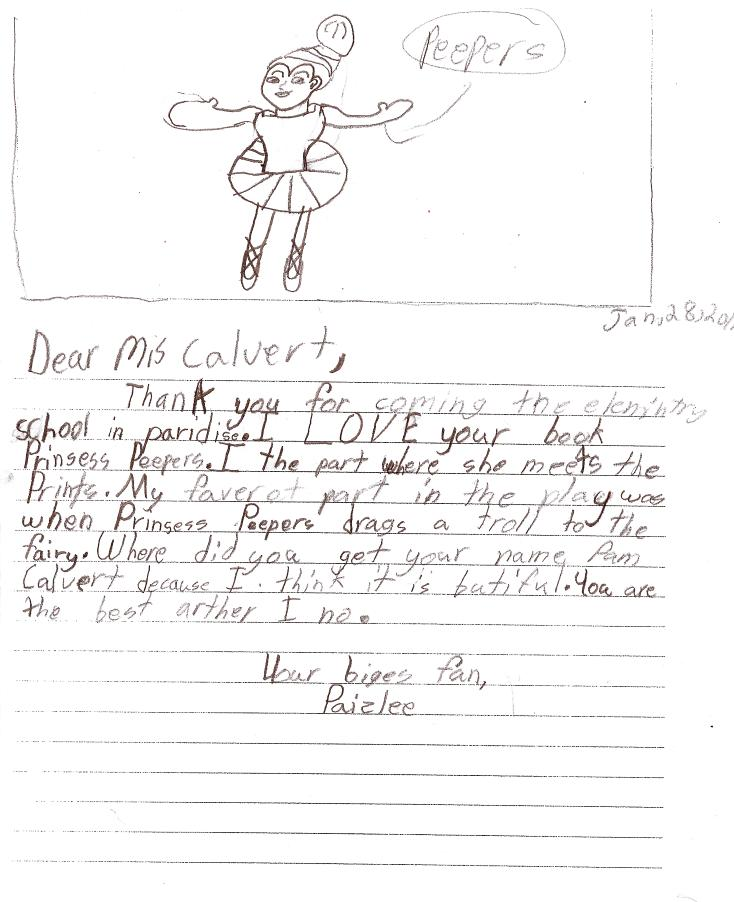 Peepers
Jan, 28, 201
Dear Mis Calvert,
Thank you for coming the elemintry
school in paridise. I LOVE your book
Prinsess Peepers. I the part where she meets the
Prints. My faverot part in the play was
when Prinsess Peepers drags a troll to the
fairy. Where did you get your name Pam
Calvert decause I think it is butiful. You are
the best arther I no.
Your biges fan,
Paizlee